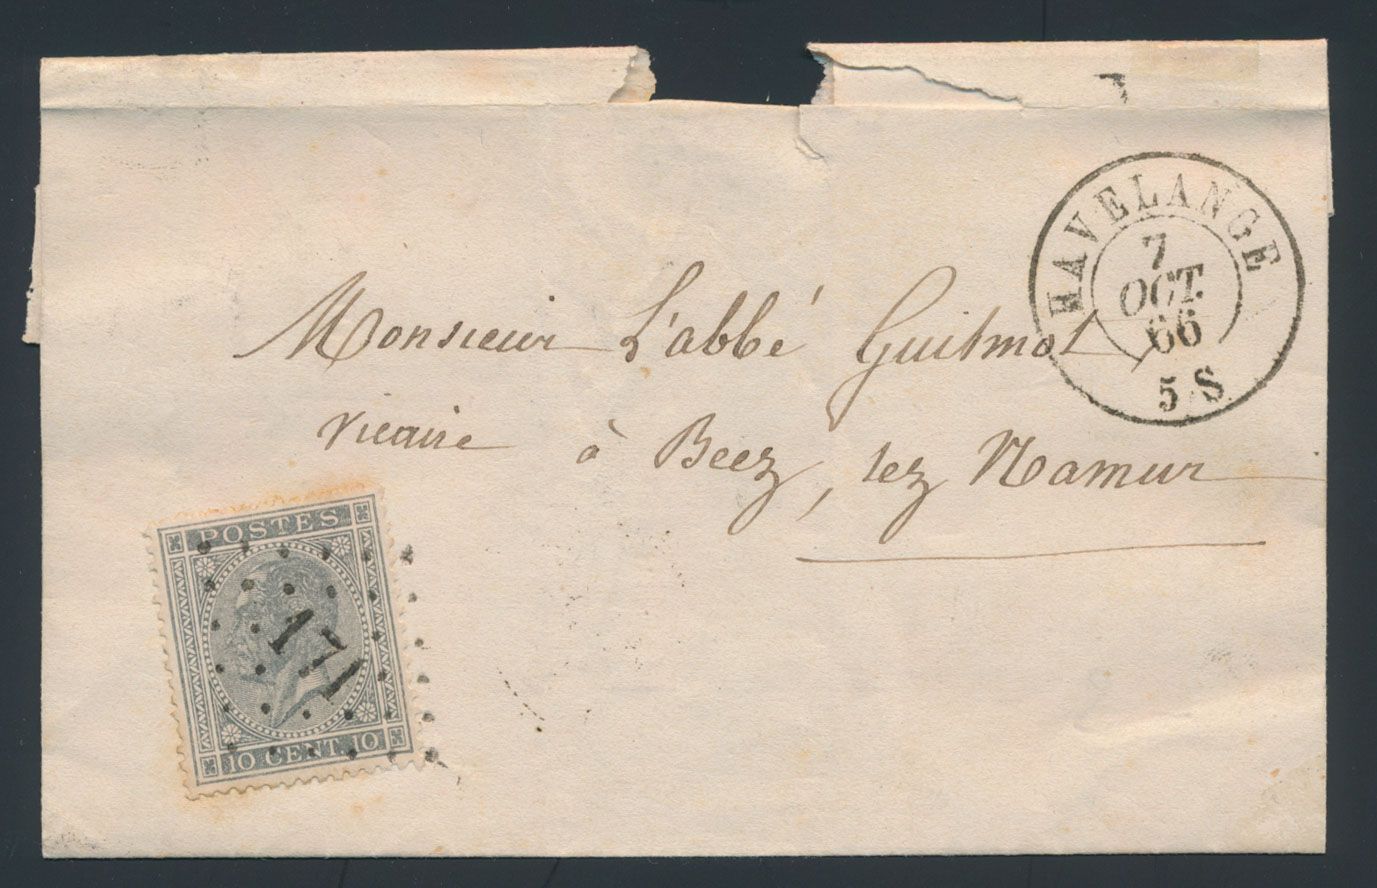 HAVELANGE
7
OCT.
66
5 S
Monsieur L'abbé Guilmot
vicaire à Beez, lez Namur
POSTES
171
10 CENT. 10